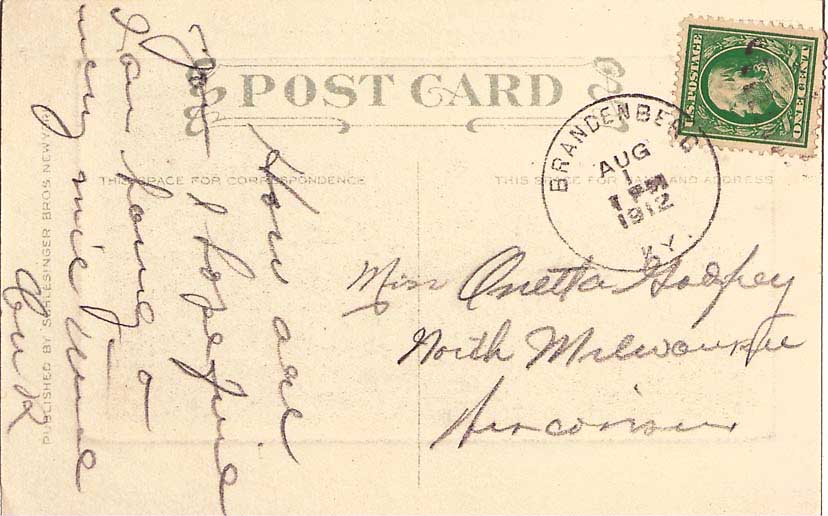 POST CARD
U.S. POSTAGE
ONE CENT
BRANDENBERG
AUG
1
1 PM
1912
KY.
THIS SPACE FOR CORRESPONDENCE
THIS SPACE FOR NAME AND ADDRESS
How are
You I hope fine
I am having a
very nice time
Miss Onetta Godfrey
North Milwaukee
Wisconsin
PUBLISHED BY SCHLESINGER BROS NEW YORK